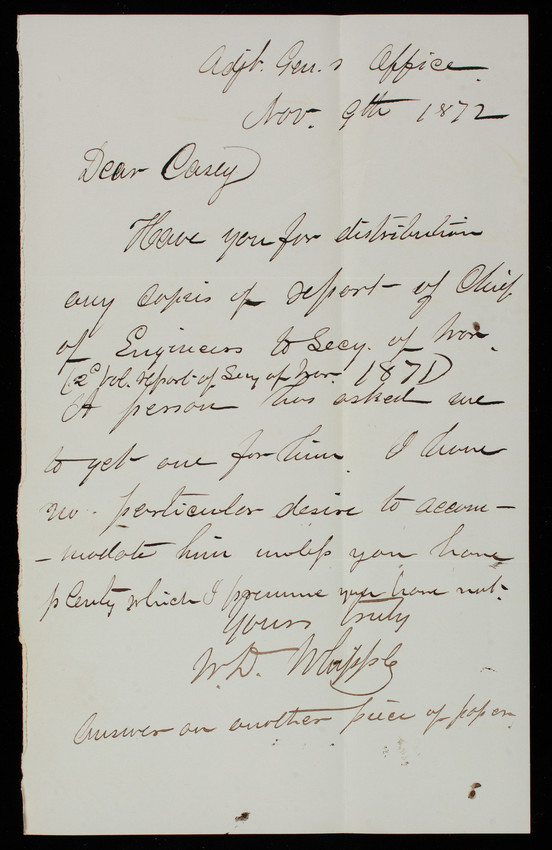 Adjt. Gen.s Office
Nov. 9th 1872
Dear Casey
Have you for distribution
any copies of report of Chief
of Engineers to Secy. of War.
(2d Vol. report of Secy of War. 1871)
A person has asked me
to get one for him. I have
no particular desire to accom-
-modate him unless you have
plenty which I presume you have not.
Yours truly
W. D. Whipple
Answer on another piece of paper.